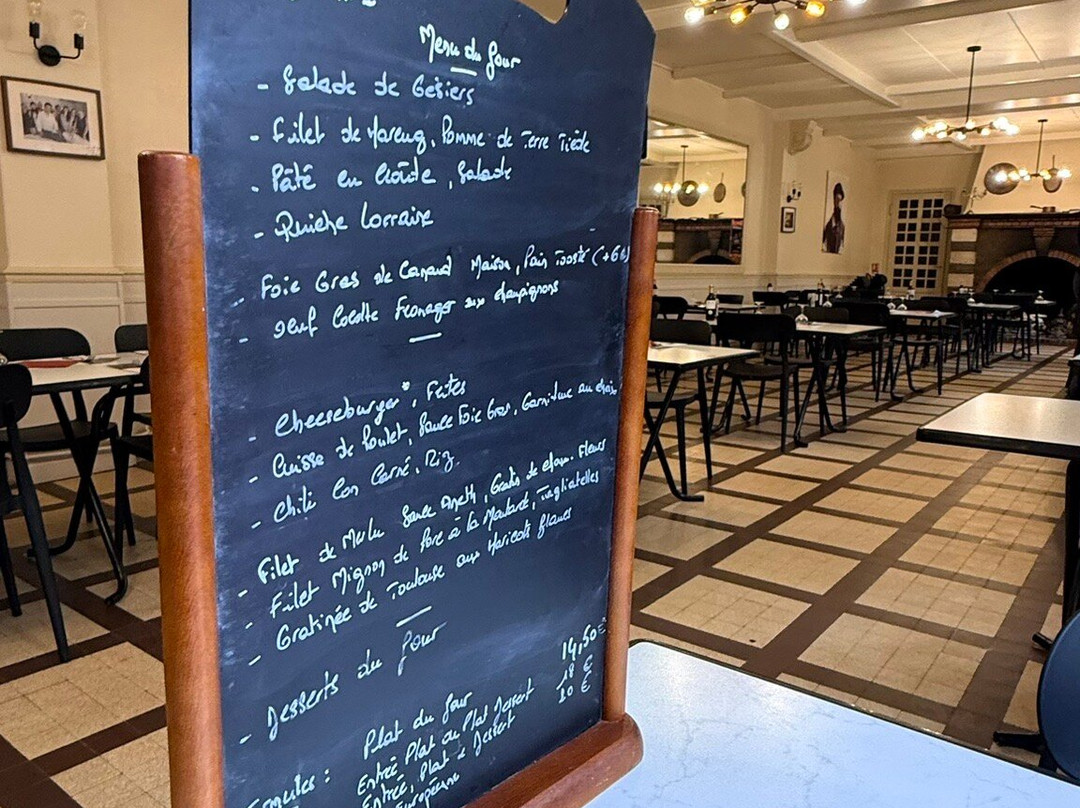 Menu du Jour
- Salade de Gésiers
- Filet de Hareng, Pomme de Terre Tiède
- Pâté en Croûte, Salade
- Quiche Lorraine
- Foie Gras de Canard Maison, Pain Toasté (+6€)
- Oeuf Cocotte Fromager aux champignons
- Cheeseburger, Frites
- Cuisse de Poulet, Sauce Foie Gras, Garniture au choix
- Chili Con Carné, Riz
- Filet de Merlu Sauce Aneth, Gratin de chou. Fleurs
- Filet Mignon de Porc à la Moutarde, Tagliatelles
- Gratinée de Toulouse aux Haricots Blancs
- Desserts du Jour
Plat du Jour 14,50€
Entrée, Plat ou Plat Dessert 18 €
Entrée, Plat + Dessert 20 €